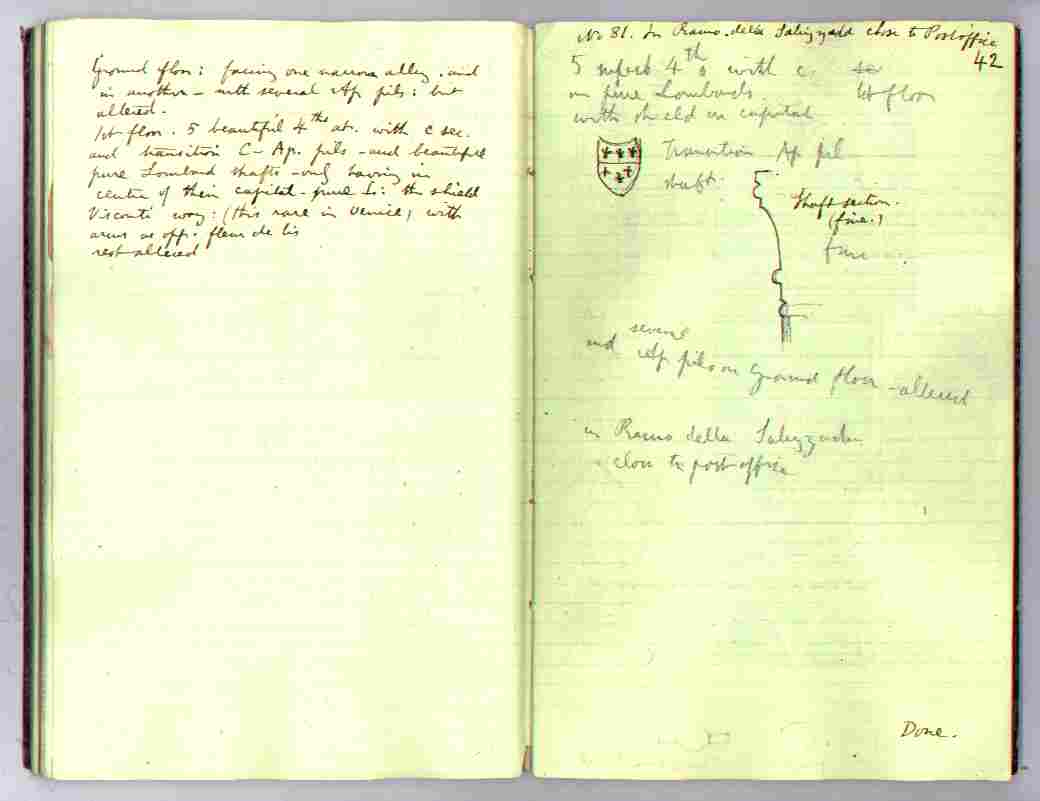 Ground floor: facing one narrow alley. and
in another - with several Ap. pils: but
altered.
1st floor. 5 beautiful 4ths at. with c sec.
and transition C - Ap. pils - and beautiful
pure Lombard shafts - only having in
centre of their capital - pure Lo: the shield
Visconti way: (this rare in Venice) with
arms as opp. fleur de lis
rest altered
No 81. In Ramo. della Salizzada close to Post office
42
5 4ths with c.
on pure Lombards. 1st floor
with shield in capital
Transition Ap pil
shaft.
Shaft section.
(fine.)
fine
several
and Ap pils on Ground floor - altered
in Ramo della Salizzada
close to post office
Done.